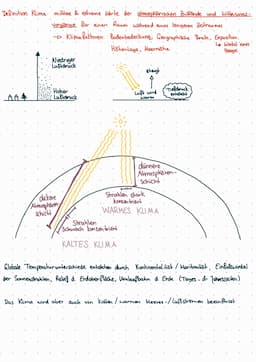 Definition Klima mittlere & extreme Werte der atmosphärischen Zustände und Witterungs-
vorgänge für einen Raum während eines längeren Zeitraumes
-> Klimafaktoren: Bodenbedeckung, Geographische Breite, Exposition
Höhenlage, Meernähe
Niedriger
Luftdruck
Hoher
Luftdruck
steigt
Luft wird
warm
Tiefdruck
entsteht
dickere
Atmosphären-
schicht
dünnere
Atmosphären-
schicht
Strahlen stark
konzentriert
WARMES KLIMA
Strahlen
Schwach konzentriert
KALTES KLIMA
Globale Temperaturunterschiede entstehen durch Kontinentalität / Maritimität, Einfallswinkel
der Sonnenstrahlen, Relief d. Erdoberfläche, Umlaufbahn d. Erde (Tages- & Jahreszeiten)
Das Klima wird aber auch von kalten / warmen Meeres- / Luftströmen beeinflusst